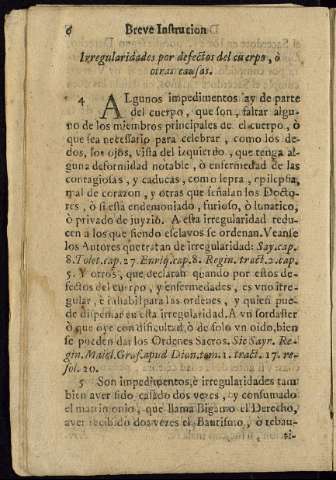 6 Breve Instrucion
Irregularidades por defectos del cuerpo, ò
otras causas.
4 ALgunos impedimentos ay de parte
del cuerpo, que son, faltar algu-
no de los miembros principales de el cuerpo, ò
que sea necessario para celebrar, como los de-
dos, los ojos, vista del izquierdo, que tenga al-
guna deformidad notable, ò enfermedad de las
contagiosas, y caducas, como lepra, epilepsia,
mal de corazon, y otras que señalan los Docto-
res, ò si està endemoniado, furioso, ò lunatico,
ò privado de juyzio. A esta irregularidad redu-
cen a los que siendo esclavos se ordenan. Veanse
los Autores que tratan de irregularidad: Say. cap.
8. Tolet. cap. 27. Enriq. cap. 8. Regin. tract. 2. cap.
5. Y otros, que declaran quando por estos de-
fectos del cuerpo, y enfermedades, es vno irre-
gular, è inhabil para las ordenes, y quien pue-
de dispensar en esta irregularidad. A vn sordaster
ò que oye con dificultad, ò de solo vn oido, bien
se pueden dar los Ordenes Sacros. Sic Sayr. Re-
gin. Maiol. Graf. apud Dian. tom. 1. tract. 17. re-
sol. 20.
5 Son impedimentos, è irregularidades tam
bien aver sido casado dos vezes, y consumado
el matrimonio, que llama Bigamo el Derecho,
aver recibido dos vezes el Bautismo, ò rebau-
ti-